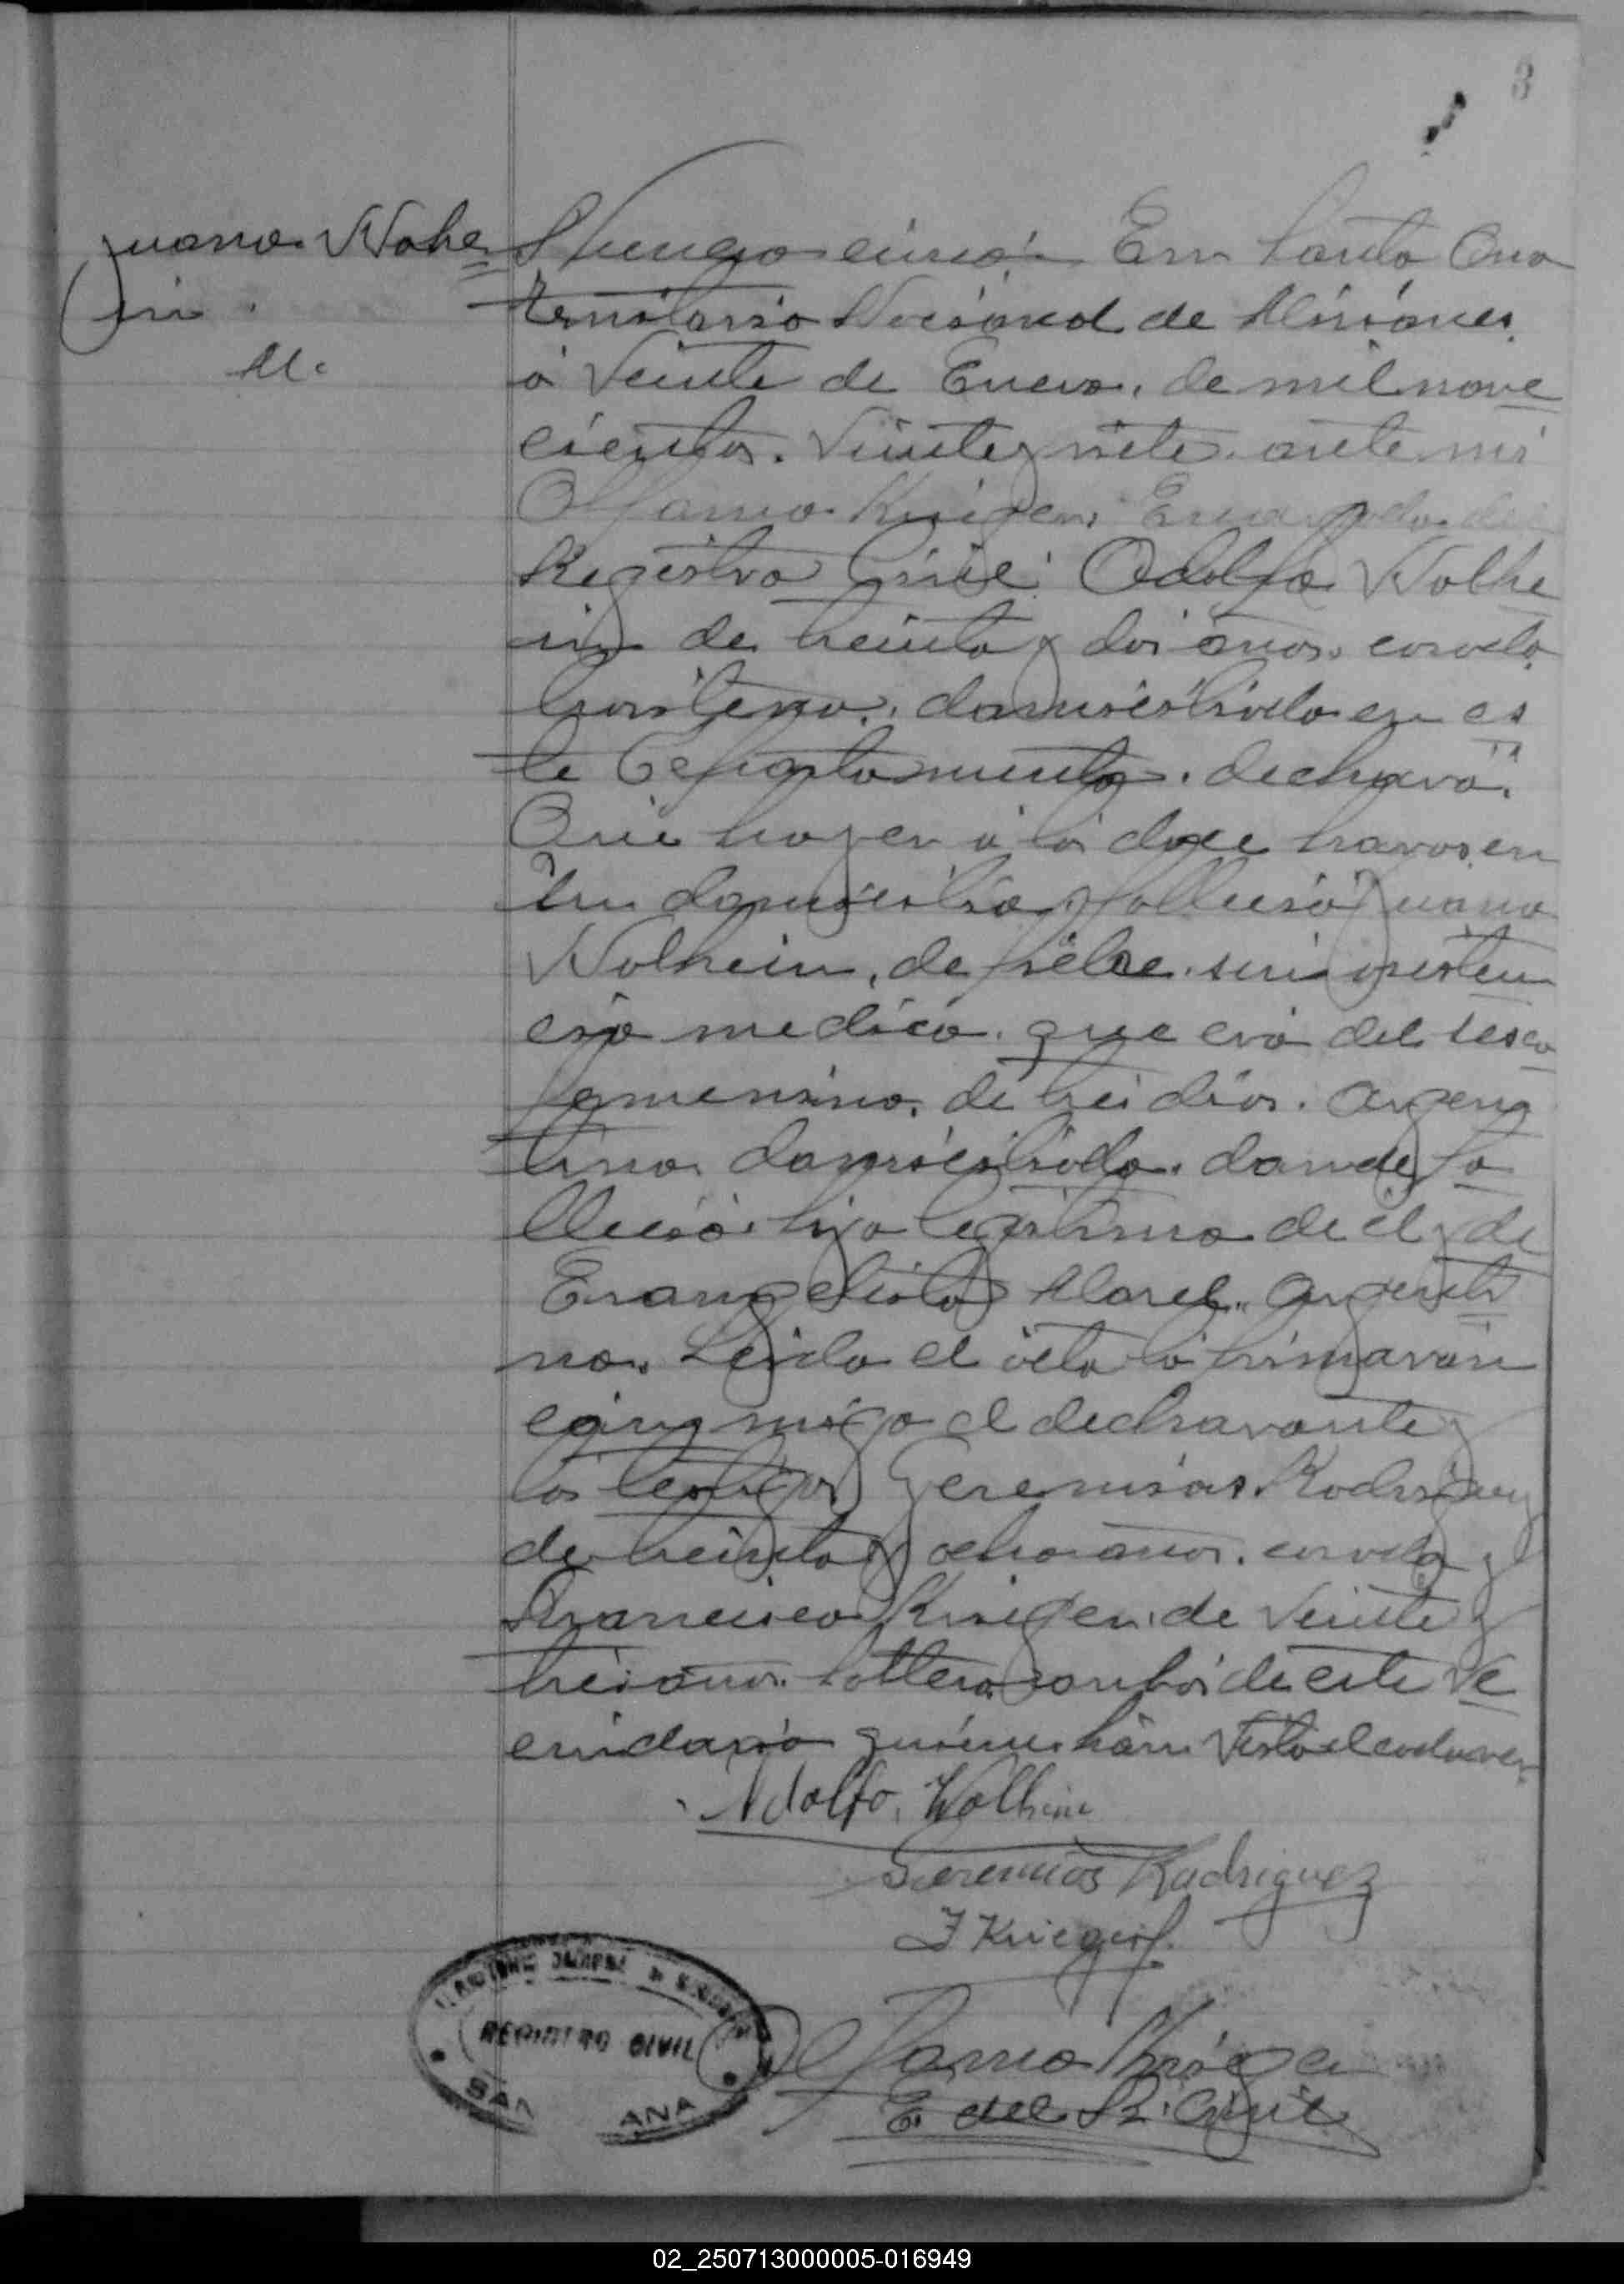 3
Juana Wohe
in
M.
Numero cinco. En Santa Ana
territorio Nacional de Misiones
á Veinte de Enero, de mil nove
cientos. Veinte y siete. ante mi
Krieger. Encargado del
Registro Civil. Adolfo Wolhe
in de treinta y dos años. casado
brasilero. domiciliado en es
te Departamento. declaró.
Que hoy a las doce horas en
su domicilio falleció Juana
Wolhein, de fiebre. sin asisten
cia medica. que era del sexo
femenino. de tres dias. argen
tina domiciliada. donde fa
lleció. hija legitima de él y de
Evangelista Argenti
na. Leida el acta la firmaron
conmigo el declarante y
los testigos Geremias Rodriguez
de treinta y ocho años. casado y
Francisco Krieger. de Veinte y
tres años. soltero ambos de este ve
cindario quienes han visto el cadaver
Adolfo Wolhein
Geremias Rodriguez
F Krieger
Krieger
E. del R. Civil
REGISTRO CIVIL
SAN ANA
02_250713000005-016949